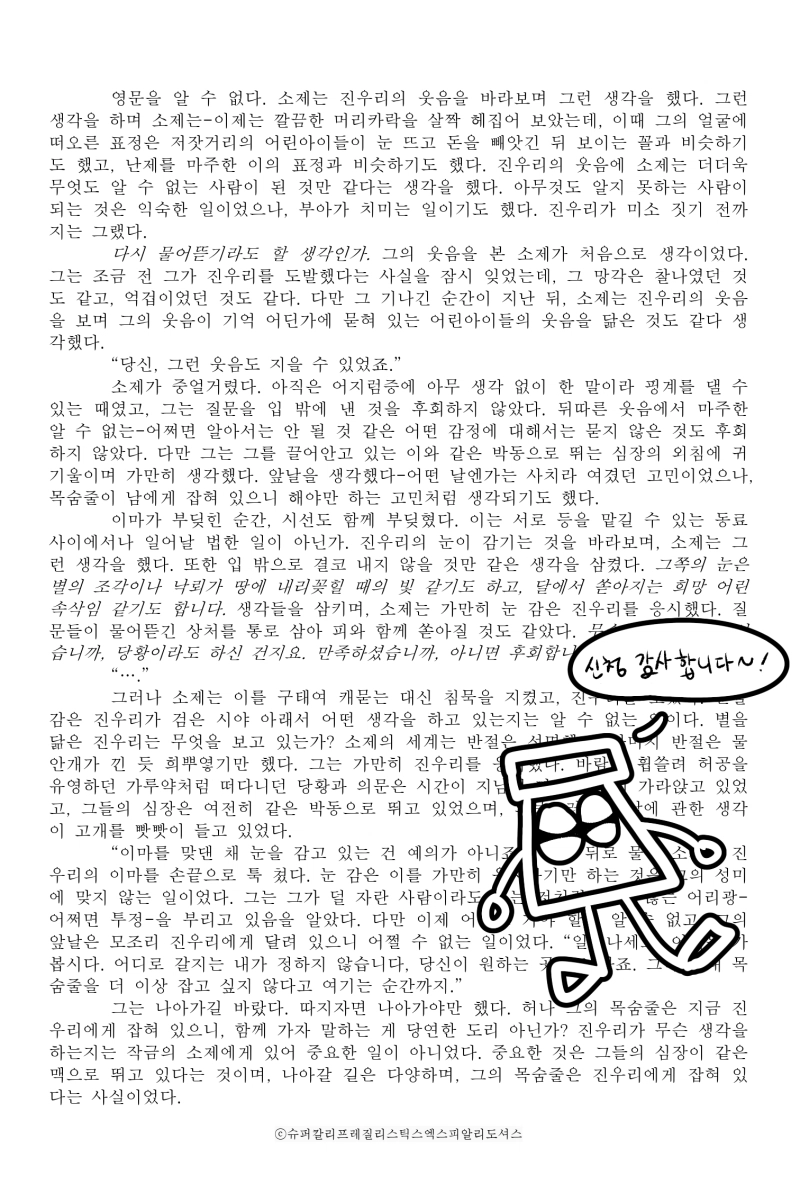 영문을 알 수 없다. 소제는 진우리의 웃음을 바라보며 그런 생각을 했다. 그런
생각을 하며 소제는-이제는 깔끔한 머리카락을 살짝 헤집어 보았는데, 이때 그의 얼굴에
떠오른 표정은 저잣거리의 어린아이들이 눈 뜨고 돈을 빼앗긴 뒤 보이는 꼴과 비슷하기
도 했고, 난제를 마주한 이의 표정과 비슷하기도 했다. 진우리의 웃음에 소제는 더더욱
무엇도 알 수 없는 사람이 된 것만 같다는 생각을 했다. 아무것도 알지 못하는 사람이
되는 것은 익숙한 일이었으나, 부아가 치미는 일이기도 했다. 진우리가 미소 짓기 전까
지는 그랬다.
다시 물어뜯기라도 할 생각인가. 그의 웃음을 본 소제가 처음으로 생각이었다.
그는 조금 전 그가 진우리를 도발했다는 사실을 잠시 잊었는데, 그 망각은 찰나였던 것
도 같고, 억겁이었던 것도 같다. 다만 그 기나긴 순간이 지난 뒤, 소제는 진우리의 웃음
을 보며 그의 웃음이 기억 어딘가에 묻혀 있는 어린아이들의 웃음을 닮은 것도 같다 생
각했다.
“당신, 그런 웃음도 지을 수 있었죠.”
소제가 중얼거렸다. 아직은 어지럼증에 아무 생각 없이 한 말이라 핑계를 댈 수
있는 때였고, 그는 질문을 입 밖에 낸 것을 후회하지 않았다. 뒤따른 웃음에서 마주한
알 수 없는-어쩌면 알아서는 안 될 것 같은 어떤 감정에 대해서는 묻지 않은 것도 후회
하지 않았다. 다만 그는 그를 끌어안고 있는 이와 같은 박동으로 뛰는 심장의 외침에 귀
기울이며 가만히 생각했다. 앞날을 생각했다-어떤 날엔가는 사치라 여겼던 고민이었으나,
목숨줄이 남에게 잡혀 있으니 해야만 하는 고민처럼 생각되기도 했다.
이마가 부딪힌 순간, 시선도 함께 부딪혔다. 이는 서로 등을 맡길 수 있는 동료
사이에서나 일어날 법한 일이 아닌가. 진우리의 눈이 감기는 것을 바라보며, 소제는 그
런 생각을 했다. 또한 입 밖으로 결코 내지 않을 것만 같은 생각을 삼켰다. 그쪽의 눈은
별의 조각이나 낙뢰가 땅에 내리꽂힐 때의 빛 같기도 하고, 달에서 쏟아지는 희망 어린
속삭임 같기도 합니다. 생각들을 삼키며, 소제는 가만히 눈 감은 진우리를 응시했다. 질
문들이 물어뜯긴 상처를 통로 삼아 피와 함께 쏟아질 것도 같았다.
습니까, 당황이라도 하신 건지요. 만족하셨습니까, 아니면 후회합니
신청 감사합니다~!
“….”
그러나 소제는 이를 구태여 캐묻는 대신 침묵을 지켰고,
감은 진우리가 검은 시야 아래서 어떤 생각을 하고 있는지는 알 수 없는 일이다. 별을
닮은 진우리는 무엇을 보고 있는가? 소제의 세계는 반절은 반절은 물
안개가 낀 듯 희뿌옇기만 했다. 그는 가만히 진우리를 휩쓸려 허공을
유영하던 가루약처럼 떠다니던 당황과 의문은 시간이 가라앉고 있었
고, 그들의 심장은 여전히 같은 박동으로 뛰고 있었으며, 관한 생각
이 고개를 빳빳이 들고 있었다.
“이마를 맞댄 채 눈을 감고 있는 건 예의가 아니죠 뒤로 진
우리의 이마를 손끝으로 툭 쳤다. 눈 감은 이를 가만히 하기만 하는 것은 그의 성미
에 맞지 않는 일이었다. 그는 그가 덜 자란 사람이라도 어리광-
어쩌면 투정-을 부리고 있음을 알았다. 다만 이제 할 알 수 없고 그의
앞날은 모조리 진우리에게 달려 있으니 어쩔 수 없는 일이었다.
봅시다. 어디로 갈지는 내가 정하지 않습니다, 당신이 원하는 목
숨줄을 더 이상 잡고 싶지 않다고 여기는 순간까지.”
그는 나아가길 바랐다. 따지자면 나아가야만 했다. 허나 그의 목숨줄은 지금 진
우리에게 잡혀 있으니, 함께 가자 말하는 게 당연한 도리 아닌가? 진우리가 무슨 생각을
하는지는 작금의 소제에게 있어 중요한 일이 아니었다. 중요한 것은 그들의 심장이 같은
맥으로 뛰고 있다는 것이며, 나아갈 길은 다양하며, 그의 목숨줄은 진우리에게 잡혀 있
다는 사실이었다.
ⓒ슈퍼칼리프레질리스틱스엑스피알리도셔스